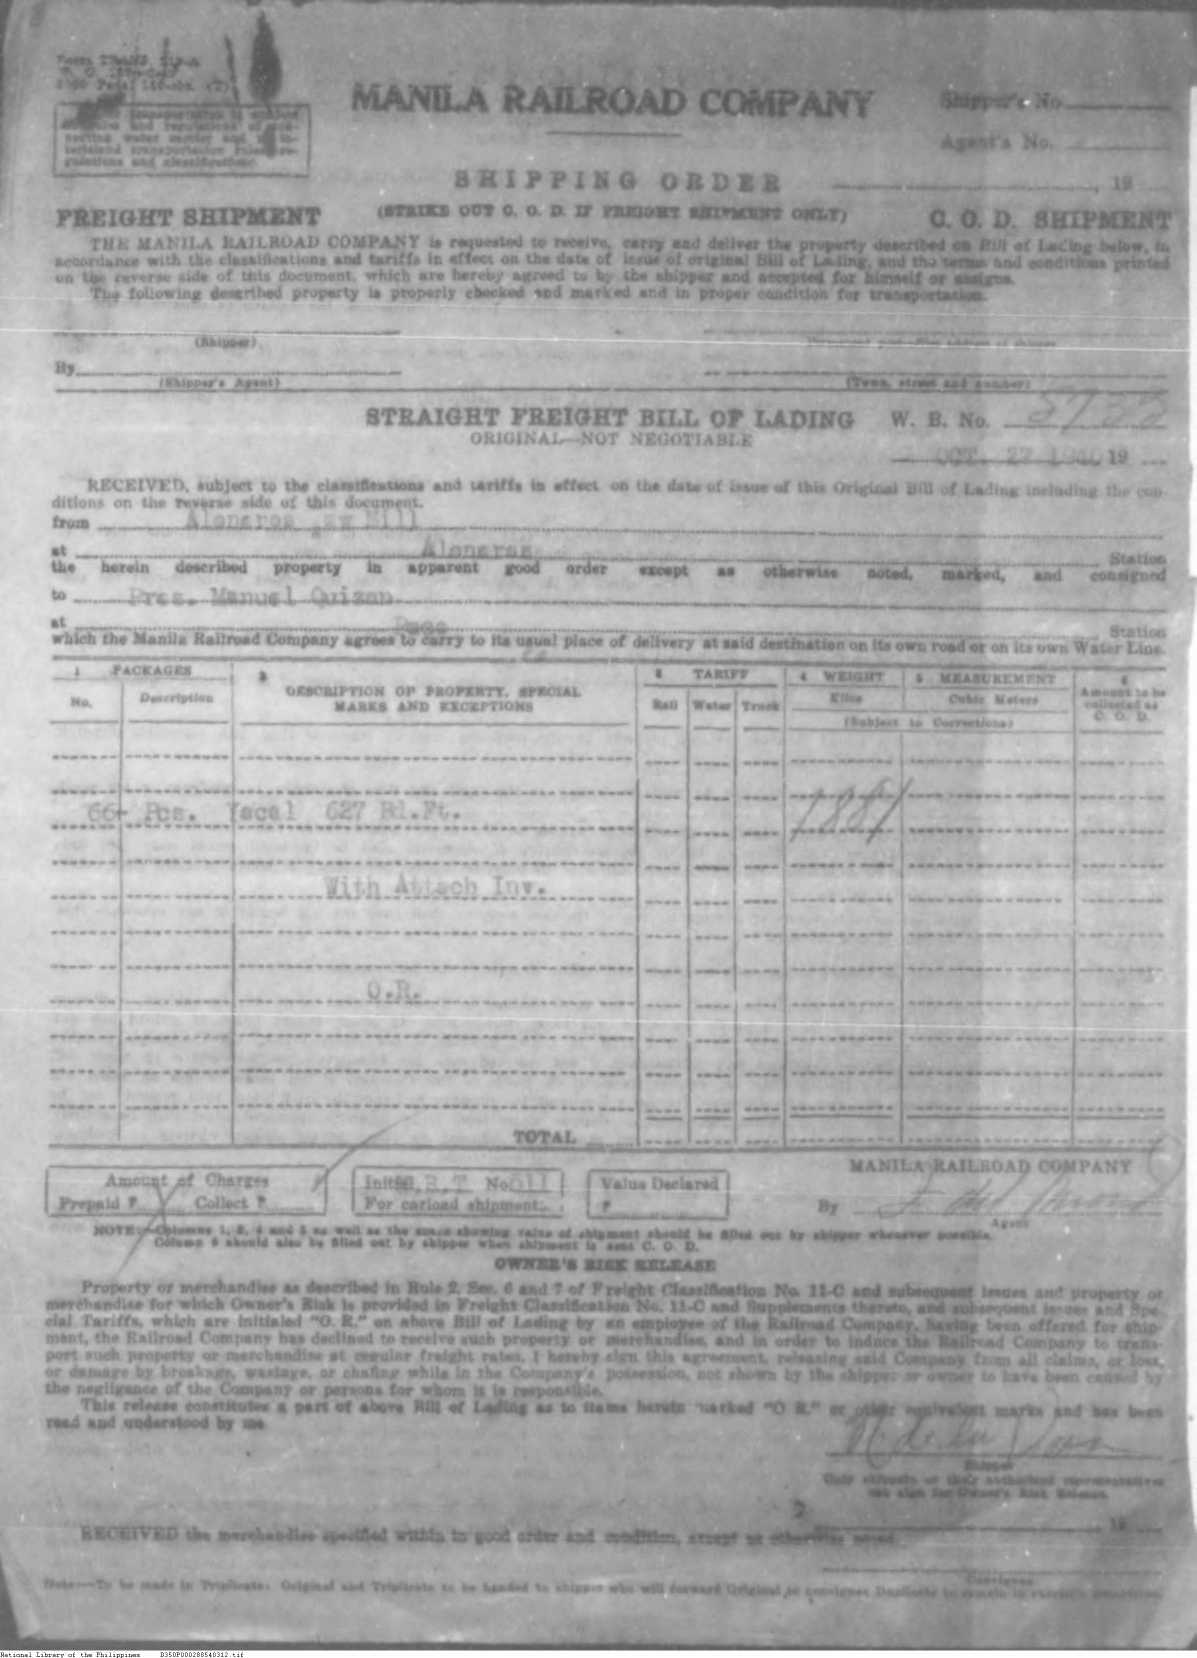 MANILA RAILROAD COMPANY
Shipper's No.
Agent's No.
SHIPPING ORDER
19
FREIGHT SHIPMENT
(STRIKE OUT C. O. D. IF FREIGHT SHIPMENT ONLY)
C. O. D. SHIPMENT
THE MANILA RAILROAD COMPANY is requested to receive, carry and deliver the property described on Bill of Lading below, in
accordance with the classifications and tariffs in effect on the date of issue of original Bill of Lading, and the terms and conditions printed
on the reverse side of this document, which are hereby agreed to by the shipper and accepted for himself or assigns.
The following described property is properly checked and marked and in proper condition for transportation.
(Shipper)
By
(Shipper's Agent)
(Town, street and number)
STRAIGHT FREIGHT BILL OF LADING
W. B. No.
ORIGINAL—NOT NEGOTIABLE
OCT. 27 1940 19
RECEIVED, subject to the classifications and tariffs in effect on the date of issue of this Original Bill of Lading including the con-
ditions on the reverse side of this document.
from Aloneros Saw Mill
at Aloneros Station
the herein described property in apparent good order except as otherwise noted, marked, and consigned
to Pres. Manuel Quizon
at Paco Station
which the Manila Railroad Company agrees to carry to its usual place of delivery at said destination on its own road or on its own Water Line.
1 PACKAGES
No. Description
2 DESCRIPTION OF PROPERTY, SPECIAL
MARKS AND EXCEPTIONS
3 TARIFF
Rail Water Truck
4 WEIGHT
Kilos
5 MEASUREMENT
Cubic Meters
(Subject to Corrections)
6 Amount to be
collected as
C. O. D.
66- Pcs. Yacal 627 Bd.Ft.
With Attach Inv.
O.R.
TOTAL
Amount of Charges
Prepaid ₱ Collect ₱
Initial No.
For carload shipment
Value Declared
₱
MANILA RAILROAD COMPANY
By
Agent
NOTE:—Columns 1, 2, 4 and 5 as well as the space showing value of shipment should be filled out by shipper whenever possible.
Column 6 should also be filled out by shipper when shipment is sent C. O. D.
OWNER'S RISK RELEASE
Property or merchandise as described in Rule 2, Sec. 6 and 7 of Freight Classification No. 11-C and subsequent issues and property or
merchandise for which Owner's Risk is provided in Freight Classification No. 11-C and Supplements thereto, and subsequent issues and Spe-
cial Tariffs, which are initialed "O. R." on above Bill of Lading by an employee of the Railroad Company, having been offered for ship-
ment, the Railroad Company has declined to receive such property or merchandise, and in order to induce the Railroad Company to trans-
port such property or merchandise at regular freight rates, I hereby sign this agreement, releasing said Company from all claims, or loss,
or damage by breakage, wastage, or chafing while in the Company's possession, not shown by the shipper or owner to have been caused by
the negligence of the Company or persons for whom it is responsible.
This release constitutes a part of above Bill of Lading as to items herein marked "O R." or other equivalent marks and has been
read and understood by me
Shipper
Only shippers or their authorized representatives
can sign for Owner's Risk Release.
19
RECEIVED the merchandise specified within in good order and condition, except as otherwise noted.
Consignee
Note:—To be made in Triplicate: Original and Triplicate to be handed to shipper who will forward Original to consignee
National Library of the Philippines D350P000288540312.tif